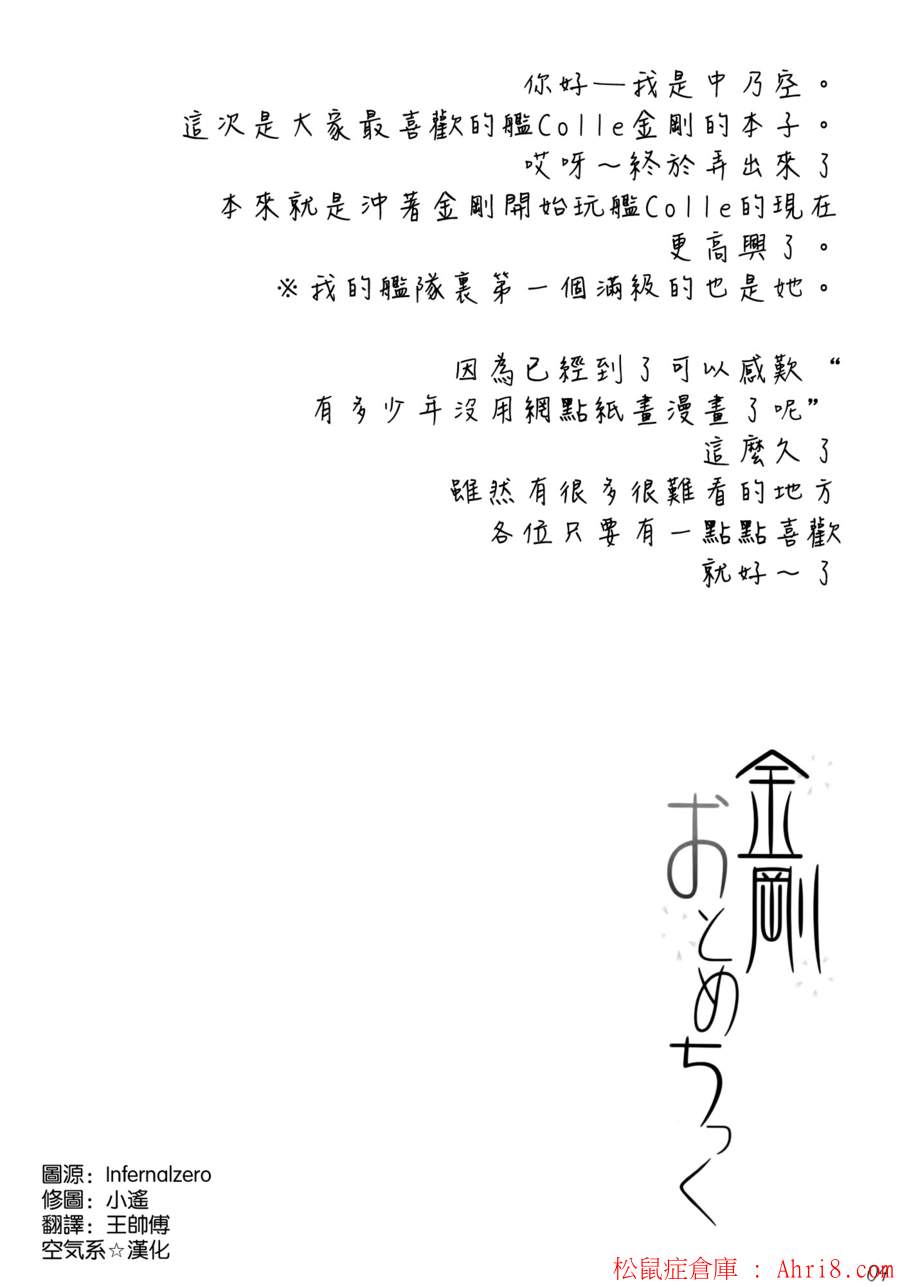 你好—我是中乃空。
這次是大家最喜歡的艦Colle金剛的本子。
哎呀～終於弄出來了
本來就是沖著金剛開始玩艦Colle的現在
更高興了。
※我的艦隊裏第一個滿級的也是她。
因為已經到了可以感歎“
有多少年沒用網點紙畫漫畫了呢”
這麼久了
雖然有很多很難看的地方
各位只要有一點點喜歡
就好～了
金剛
おとめちっく
圖源：Infernalzero
修圖：小遙
翻譯：王帥傅
空気系☆漢化
松鼠症倉庫 : Ahri8.com